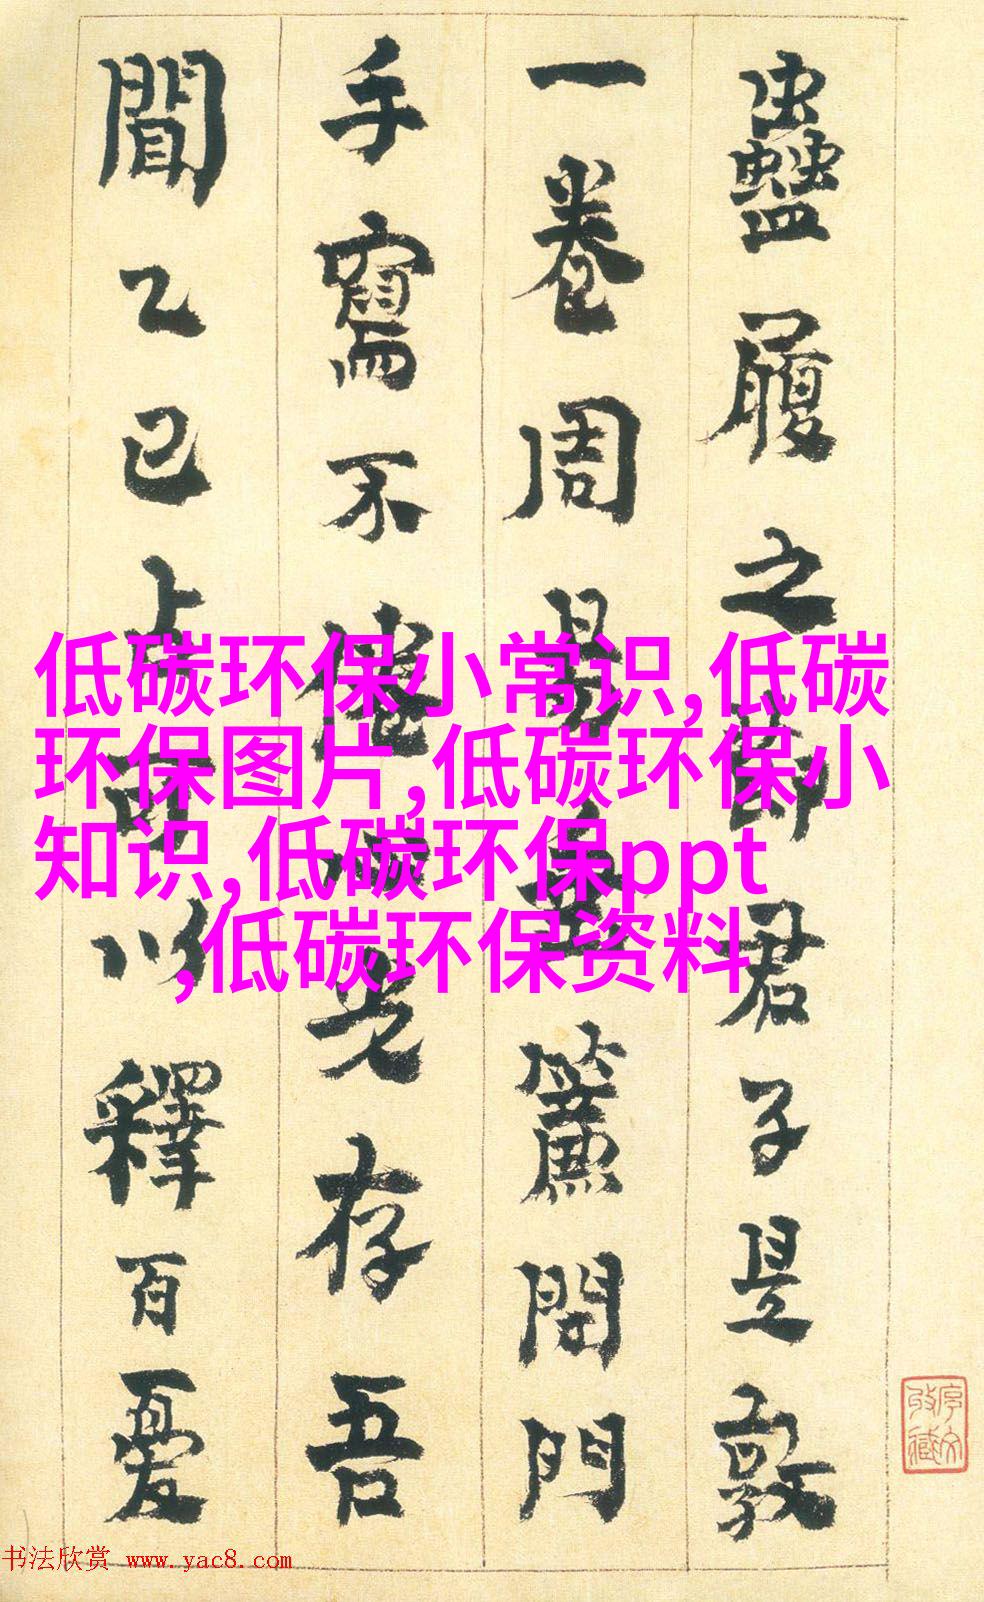 蠱履之節君子是敦
一卷周易垂簾閉門
手不倦存吾
聞乙巳占可以釋百憂
低碳环保小常识,低碳
环保图片,低碳环保小
知识,低碳环保ppt
,低碳环保资料
书法欣赏 www.yac8.com